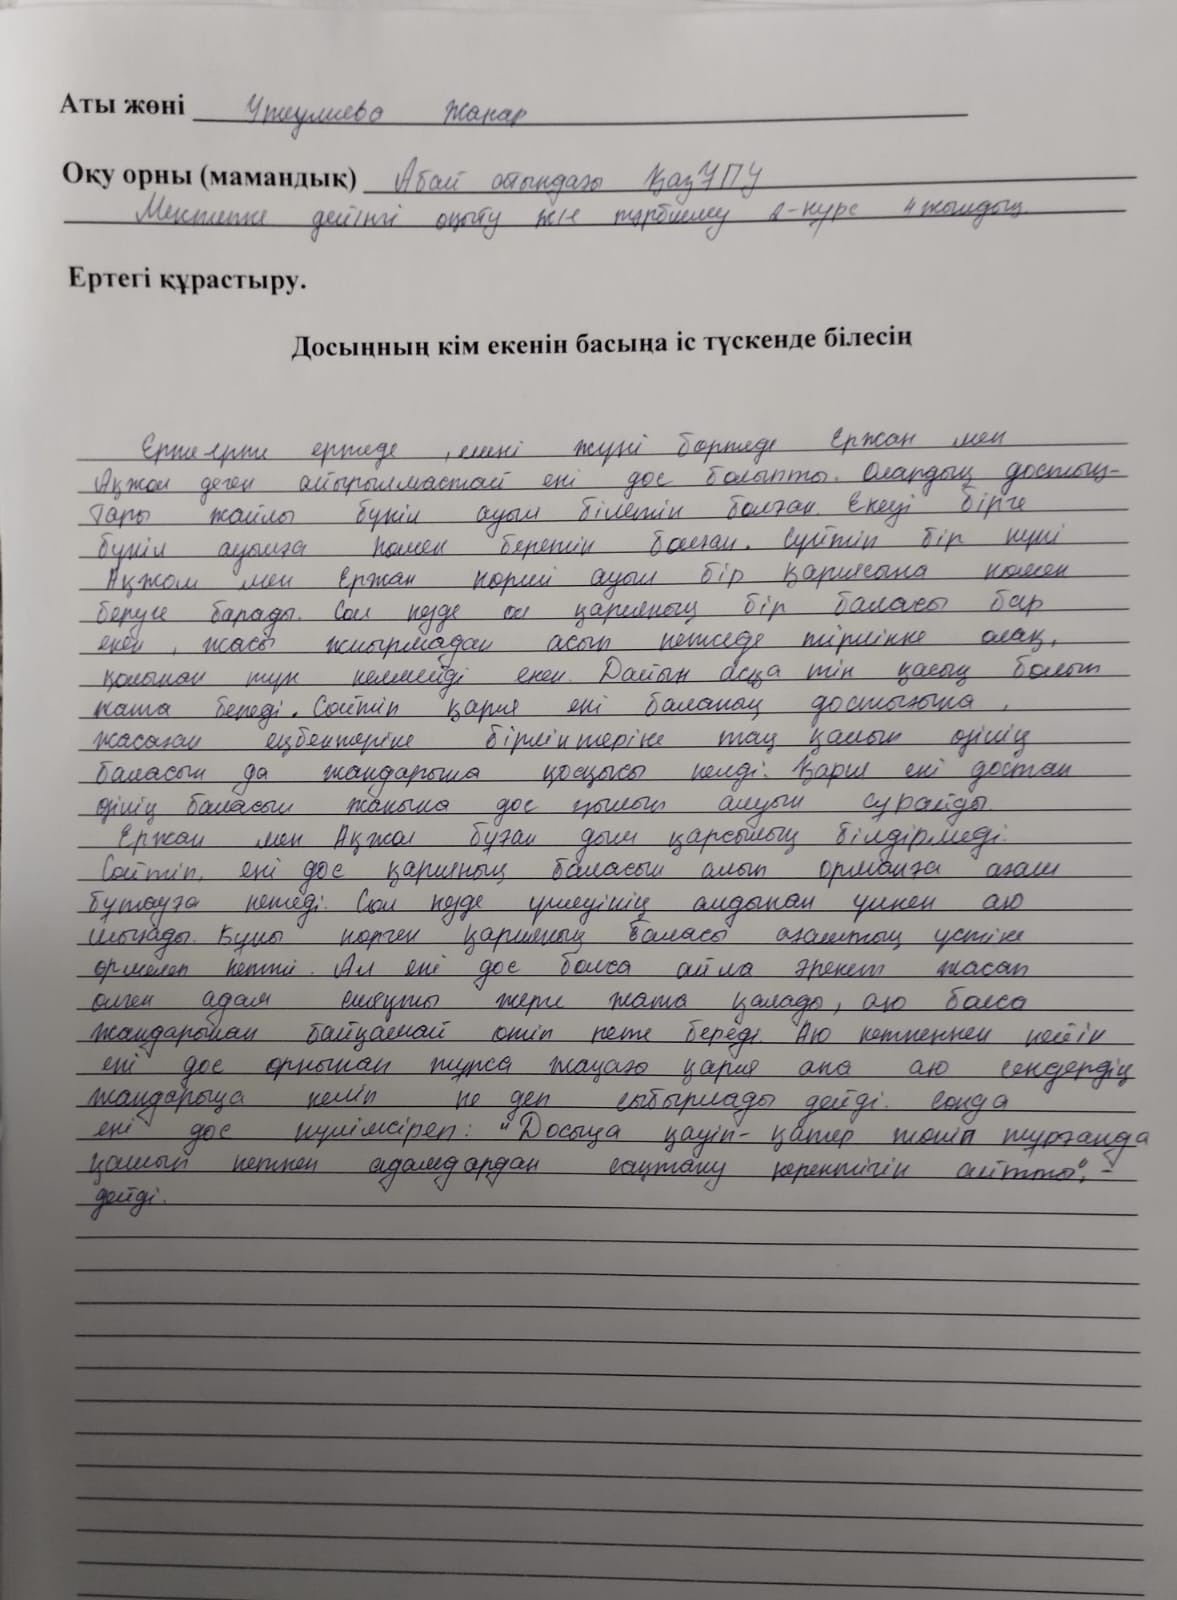 Аты жөні Утеулиева Жанар
Оқу орны (мамандық) Абай атындағы ҚазҰПУ
Мектепке дейінгі оқыту және тәрбиелеу 2-курс 4 жылдық
Ертегі құрастыру.
Досыңның кім екенін басыңа іс түскенде білесің
Ерте ерте ертеде, ешкі жүні бөртеде Ержан мен
Ақжол деген айырылмастай екі дос болыпты. Олардың достық-
тары жайлы бүкіл ауыл білетін болған. Екеуі бірге
бүкіл ауылға көмек беретін болған. Сүйтіп бір күні
Ақжол мен Ержан көрші ауыл бір қариясына көмек
беруге барады. Сол кезде ол қарияның бір баласы бар
екен, жасы жиырмадан асып кетседе тірлікке олақ,
қолынан түк келмейді екен. Дайын асқа тік қасық болып
жата береді. Сөйтіп қария екі баланың достығына,
жасаған еңбектеріне бірліктеріне таң қалып өзінің
баласын да жандарына қосқысы келді. Қария екі достан
өзінің баласын жанына дос қылып алуын сұрайды.
Ержан мен Ақжол бұған дым қарсылық білдірмеді.
Сөйтіп, екі дос қарияның баласын алып орманға ағаш
бұтауға кетеді. Сол кезде үшеуінің алдынан үлкен аю
шығады. Бұны көрген қарияның баласы ағаштың үстіне
өрмелеп кетті. Ал екі дос болса айла әрекет жасап
өлген адам сияқты жерге жата қалады, аю болса
жандарынан байқамай өтіп кете береді. Аю кеткеннен кейін
екі дос орнынан тұрса жаңағы қария ана аю сендердің
жандарыңа келіп не деп сыбырлады дейді. Сонда
екі дос күлімсіреп: "Досыңа қауіп-қатер төніп тұрғанда
қашып кеткен адамдардан сақтану керектігін айтты", -
дейді.